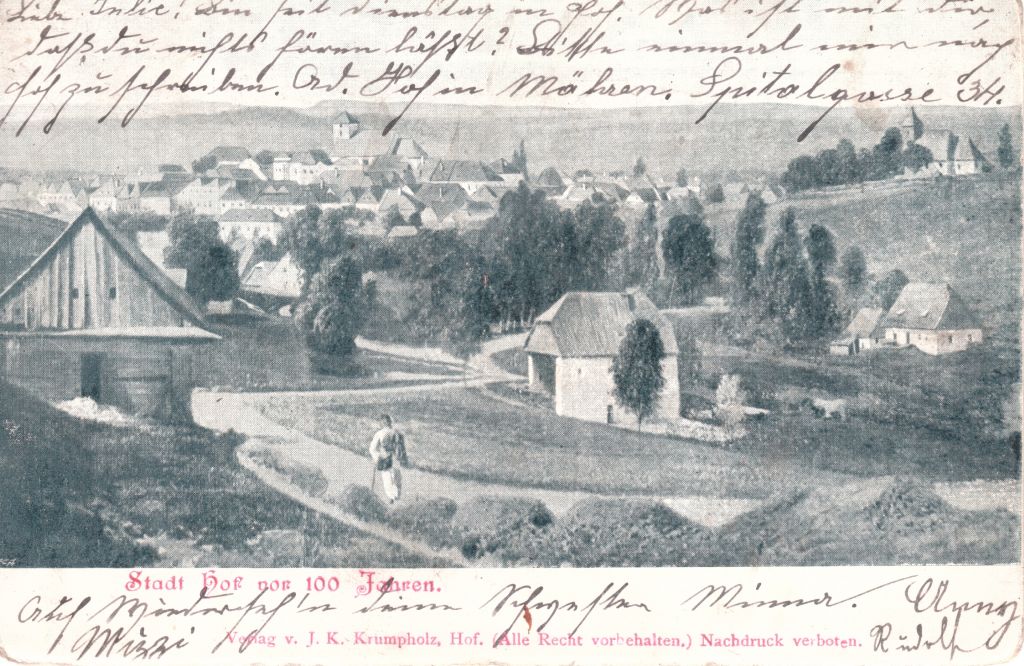 Liebe Julie! Bin seit dienstag in Hof. Was ist mit dir,
daß du nichts hören läßt? Bitte einmal mir nach
Hof zu schreiben. Ad. Hof in Mähren. Spitalgasse 34.
Stadt Hof vor 100 Jahren.
Auf Wiederseh'n deine Schwester Minna.
Verlag v. J. K. Krumpholz, Hof. (Alle Recht vorbehalten.) Nachdruck verboten.
Rudolf